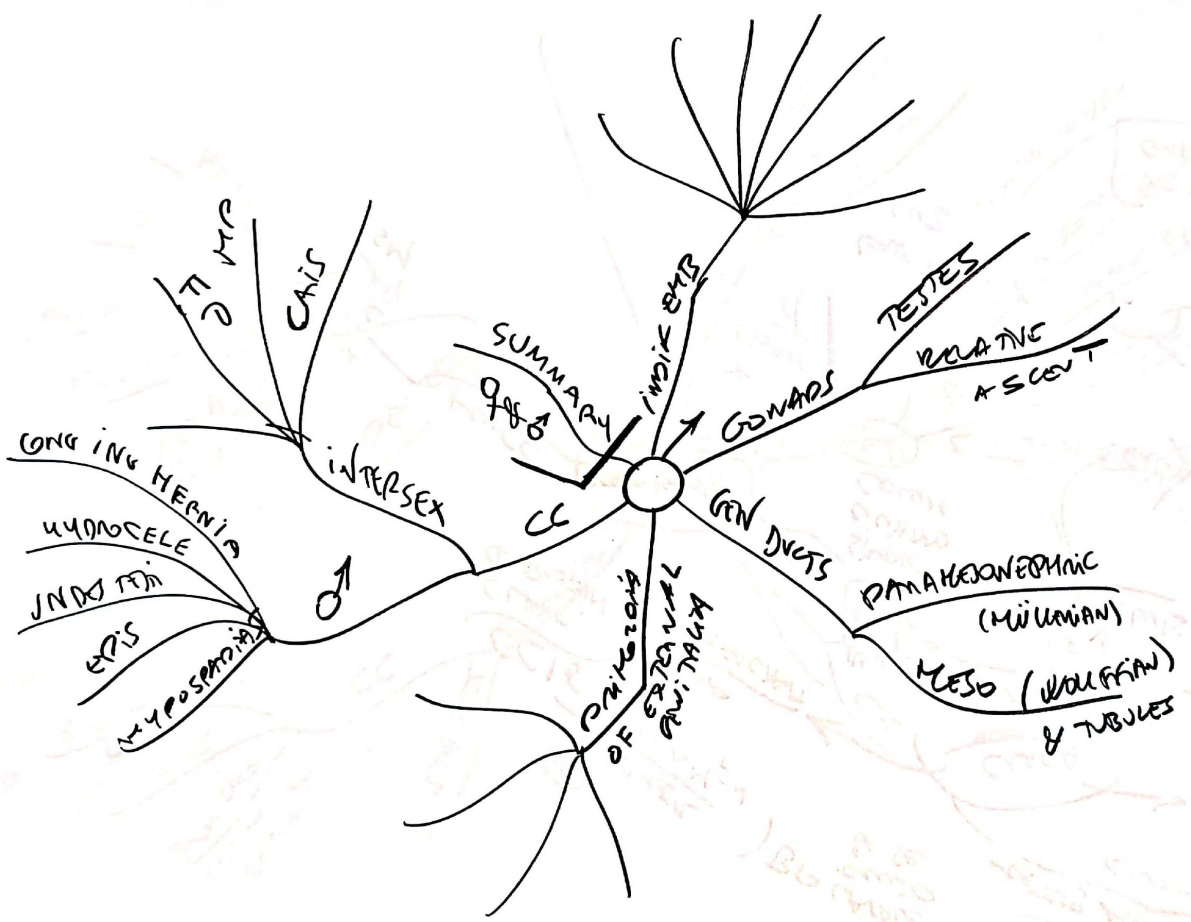 INDIF EMB
GONADS
TESTES
RELATIVE
ASCENT
GEN DUCTS
PARAMESONEPHRIC
(MÜLLERIAN)
MESO (WOLFFIAN)
& TUBULES
OF EXTERNAL
GENITALIA
CC
♂
CONG ING HERNIA
HYDROCELE
EPIS
HYPOSPADIA
INTERSEX
MP
CAIS
SUMMARY